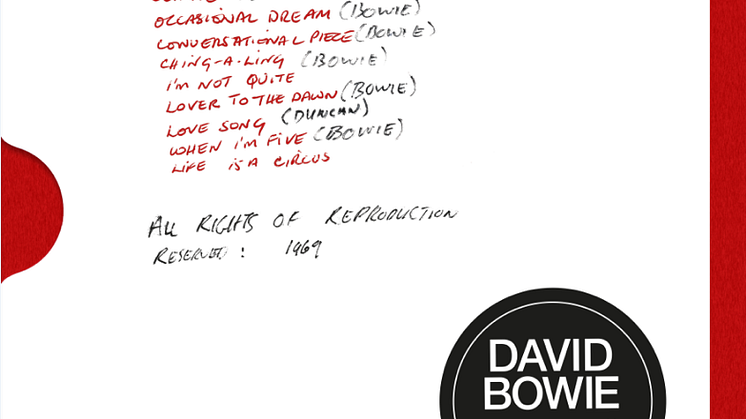 OCCASIONAL DREAM (BOWIE)
CONVERSATIONAL PIECE (BOWIE)
CHING-A-LING (BOWIE)
I'M NOT QUITE
LOVER TO THE DAWN (BOWIE)
LOVE SONG (DUNCAN)
WHEN I'M FIVE (BOWIE)
LIFE IS A CIRCUS
ALL RIGHTS OF REPRODUCTION
RESERVED: 1969
DAVID
BOWIE